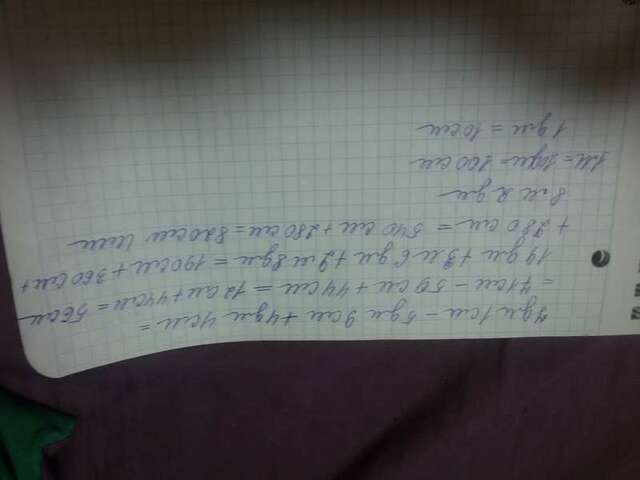 7дм 1см − 5дм 9см + 4дм 4см =
= 71см − 59см + 44см = 12см + 44см = 56см
19дм + 3м 6дм + 2м 8дм = 190см + 360см +
+ 280см = 540см + 280см = 820см или
8м 2дм
1м = 10дм = 100см
1дм = 10см